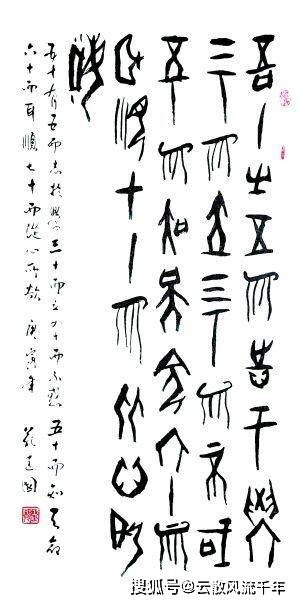 吾十有五而志于學
三十而立四十而不或
五十而知天命六十而
耳順七十而从心所
欲
吾十有五而志於學三十而立四十而不惑五十而知天命
六十而耳順七十而從心所欲 庚寅年
搜狐号@云散风流千年